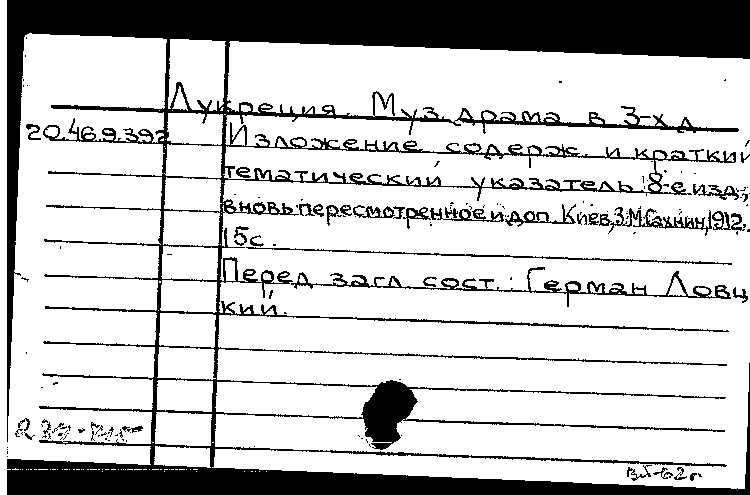 Лукреция. Муз. драма в 3-х д.
20.46.9.392
Изложение содерж. и краткий
тематический указатель 8-е изд.,
вновь пересмотренное и доп. Киев, З.М.Сахнин, 1912.
15с.
Перед загл. сост.: Герман Ловц
кий.